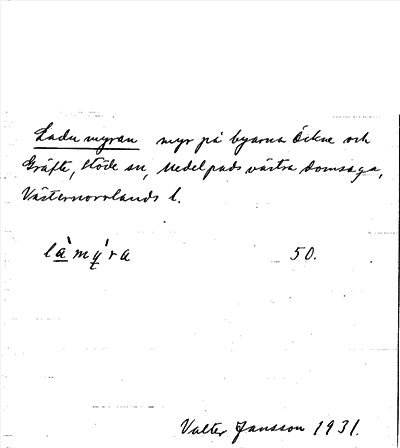 Ladumyran myr på byarna Öckne och
Gräfte, Stöde sn, Medelpads västra domsaga,
Västernorrlands l.
là̱mý̱ra 50.
Valter Jansson 1931.